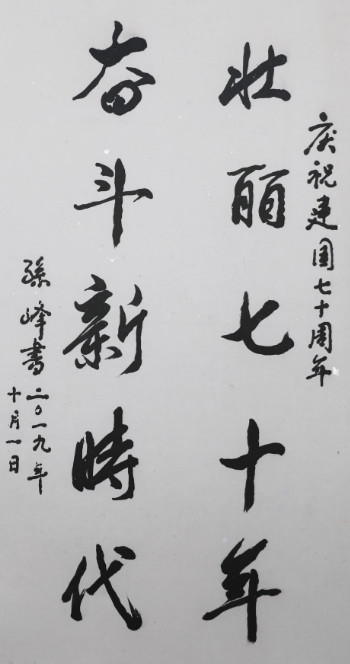 庆祝建国七十周年
壮丽七十年
奋斗新時代
孫峰書二〇一九年
十月一日